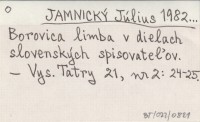 JAMNICKÝ Július 1982...
Borovica limba v dielach
slovenských spisovateľov.
– Vys. Tatry 21, nr 2: 24-25.